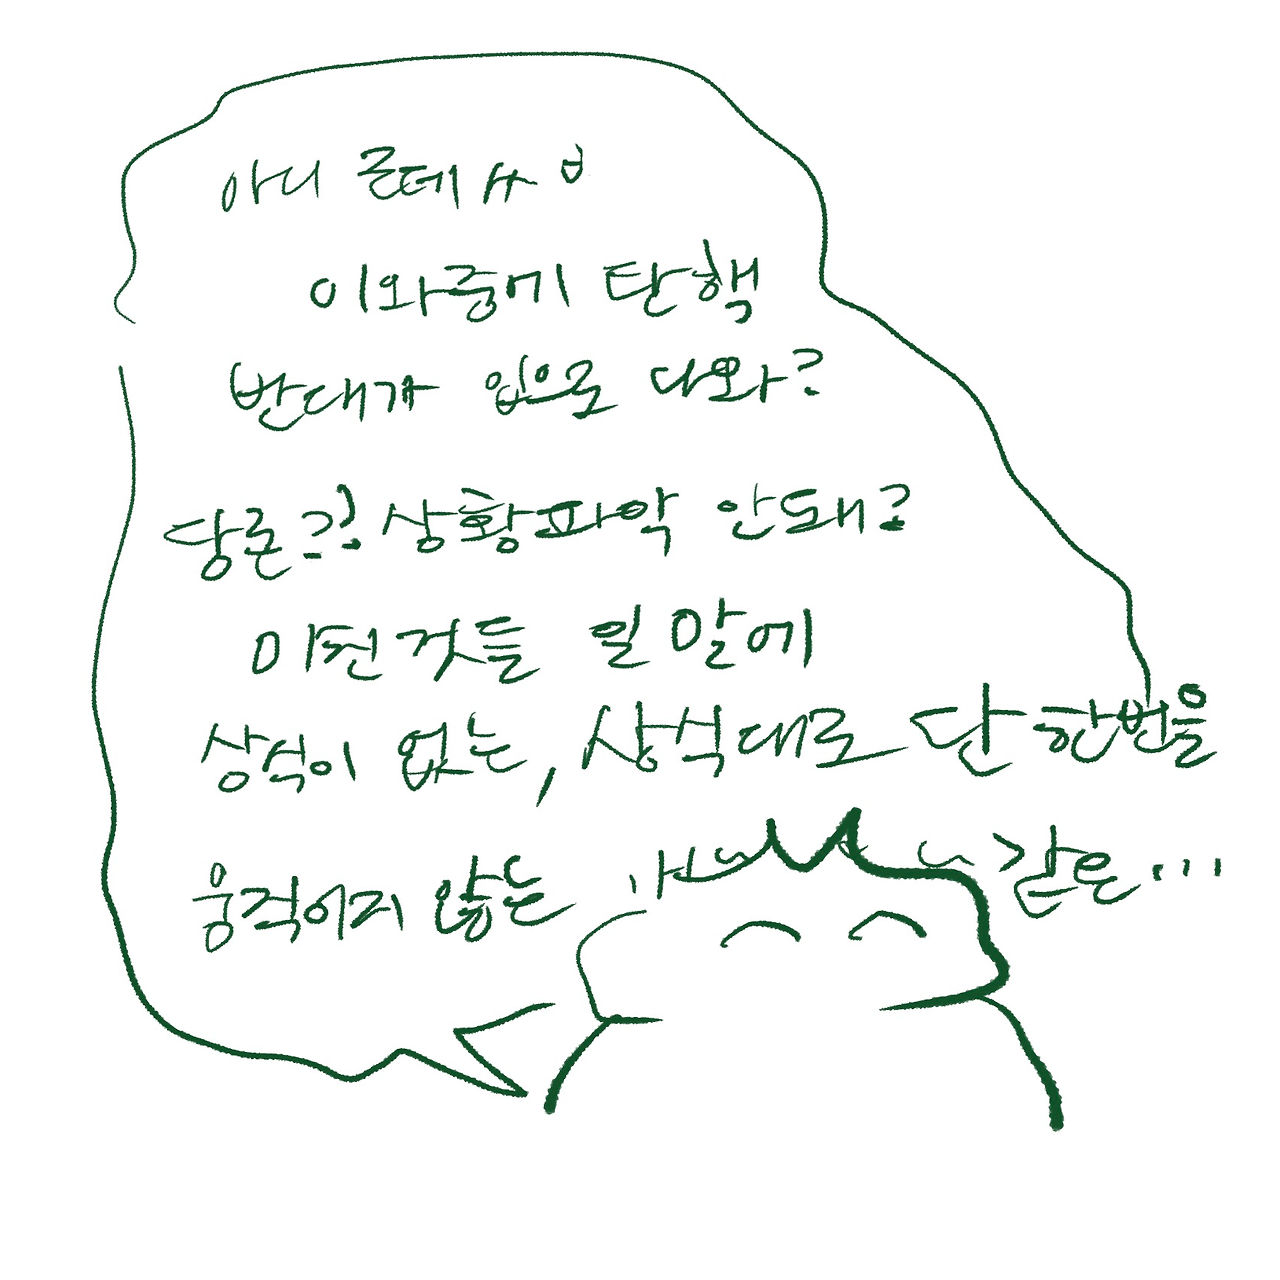 아니 근데 ㅆㅂ
이와중에 탄핵
반대가 입으로 나와?
당론?? 상황파악 안돼?
미친것들 일 말에
상식이 없는, 상식대로 단 한번을
움직이지 않는 같은...